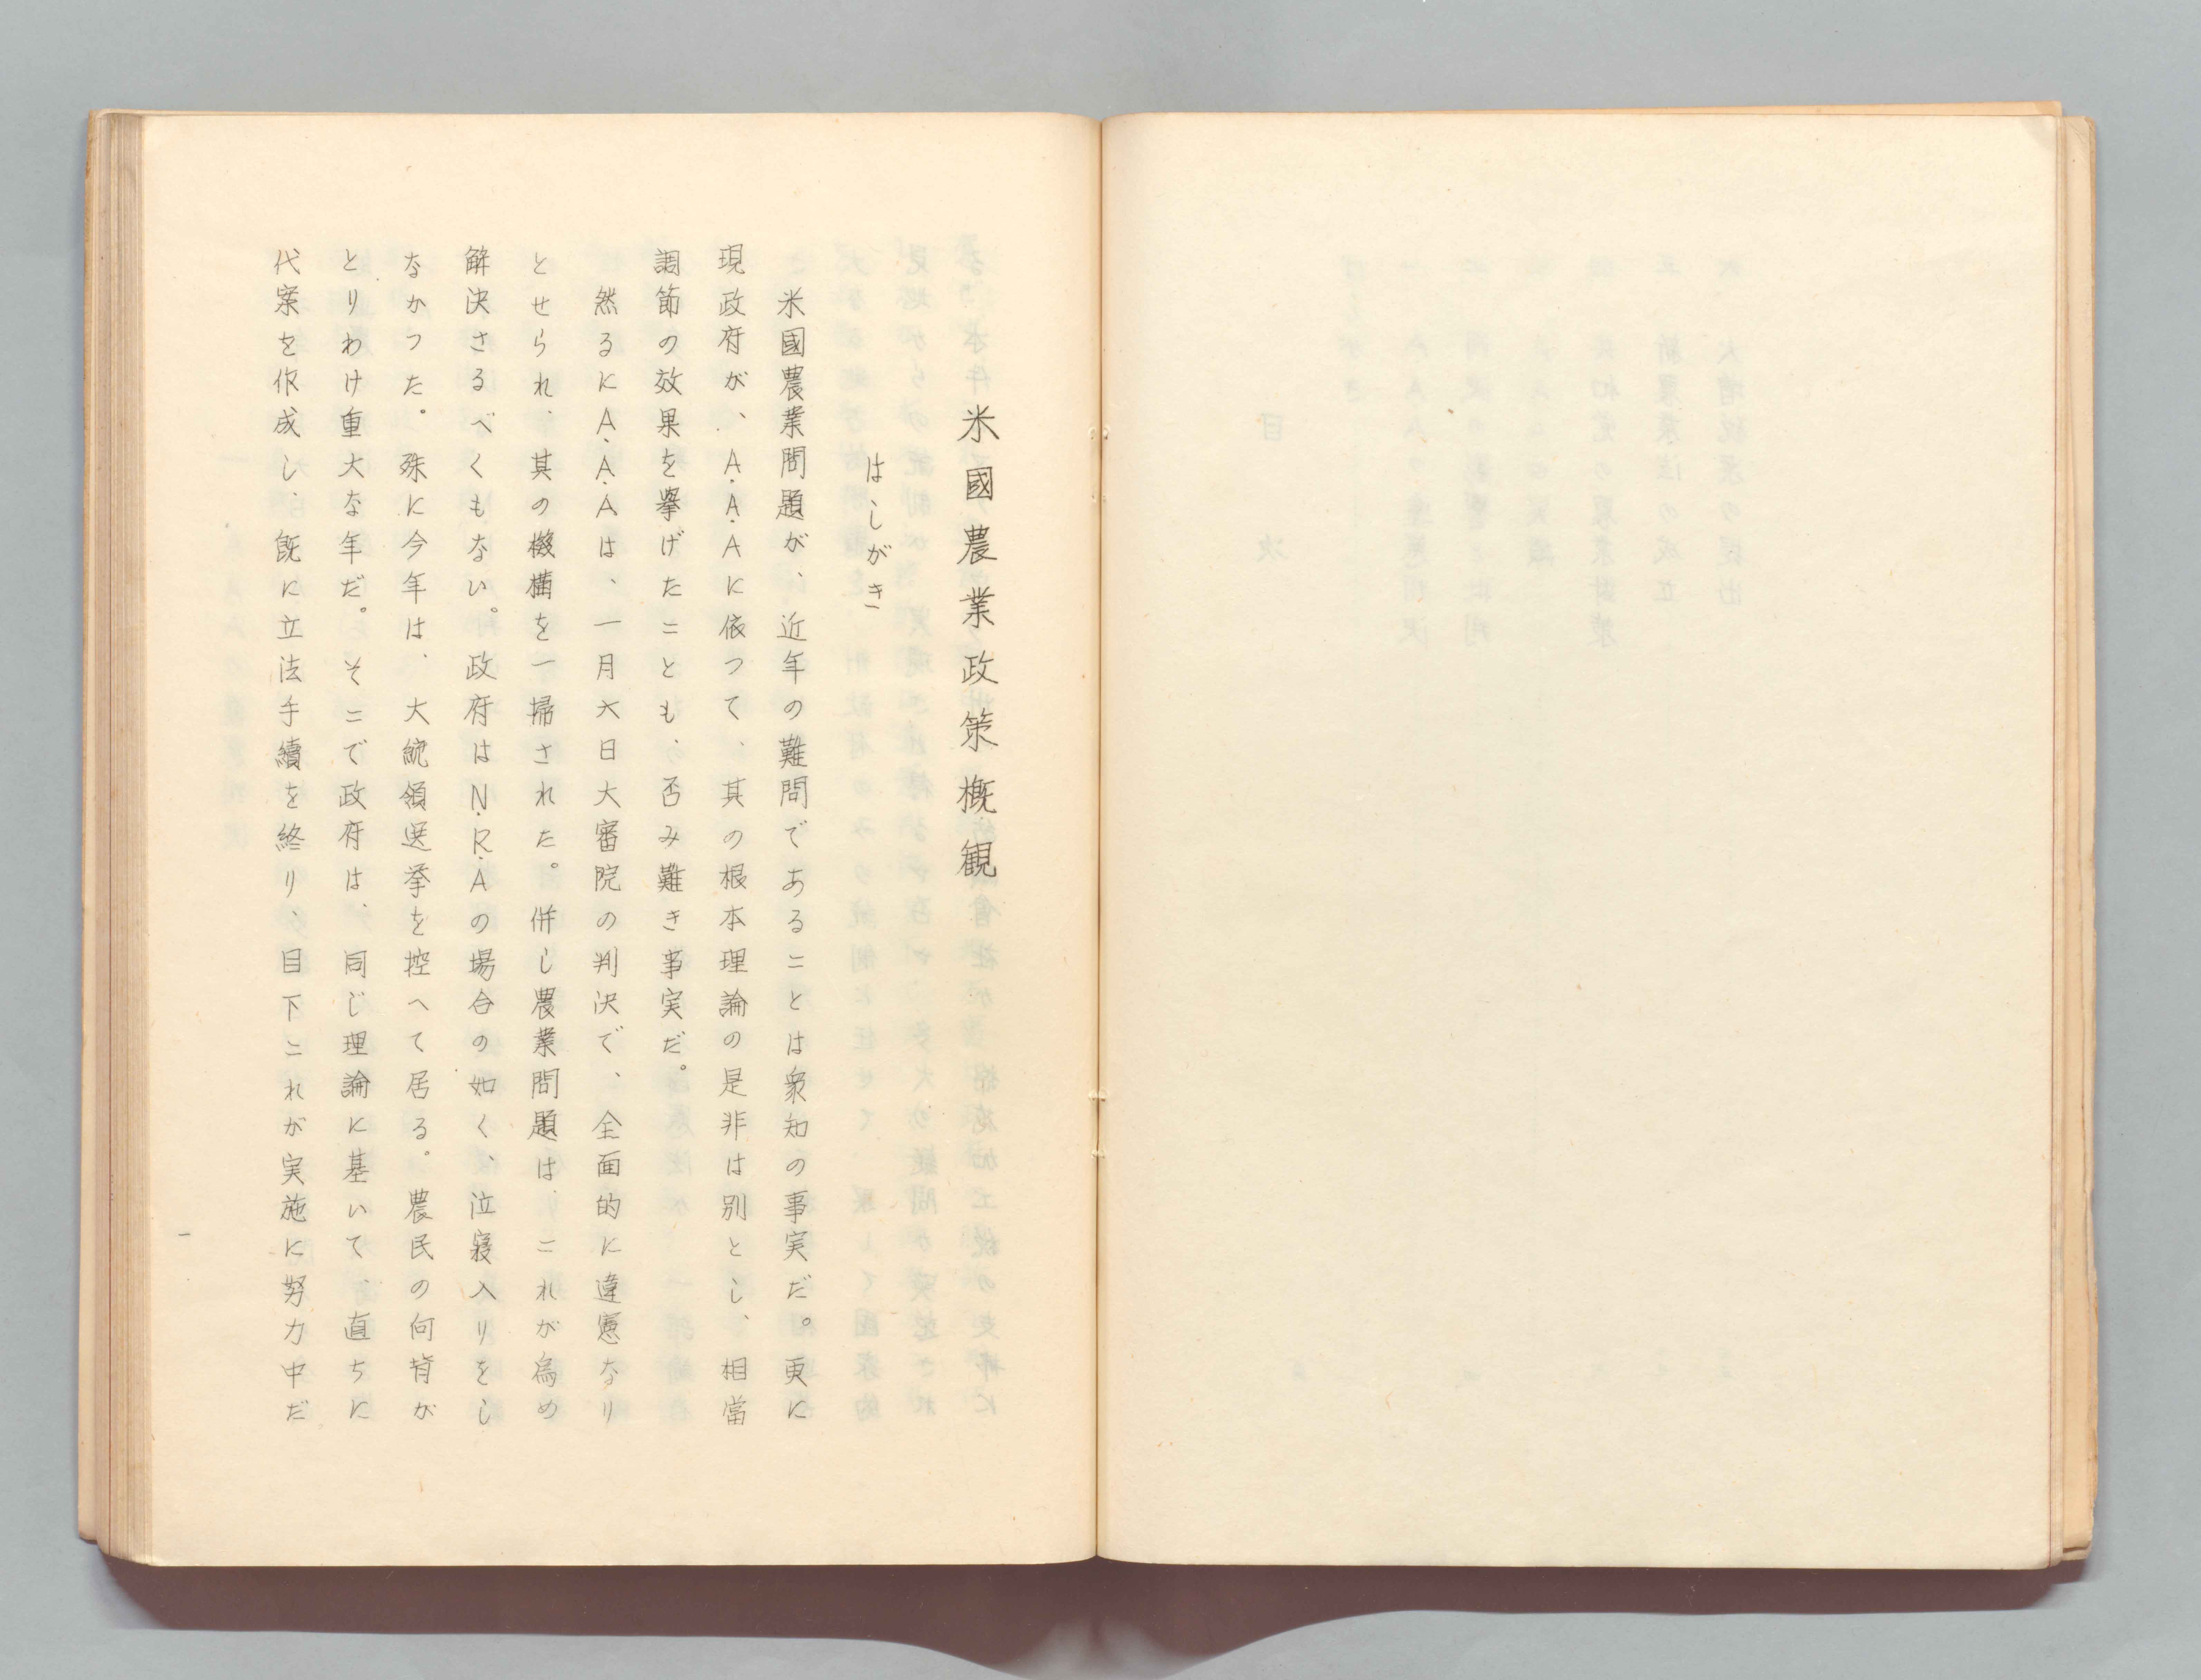 米國農業政策概観
はしがき
米國農業問題が、近年の難問であることは衆知の事実だ。更に
現政府が、A.A.Aに依つて、其の根本理論の是非は別とし、相當
調節の効果を擧げたことも、否み難き事実だ。
然るにA.A.Aは、一月六日大審院の判決で、全面的に違憲なり
とせられ、其の機構を一掃された。併し農業問題は、これが爲め
解決さるべくもない。政府はN.R.Aの場合の如く、泣寝入りをし
なかつた。殊に今年は、大統領選挙を控へて居る。農民の向背が
とりわけ重大な年だ。そこで政府は、同じ理論に基いて、直ちに
代案を作成し、既に立法手續を終り、目下これが実施に努力中だ
一